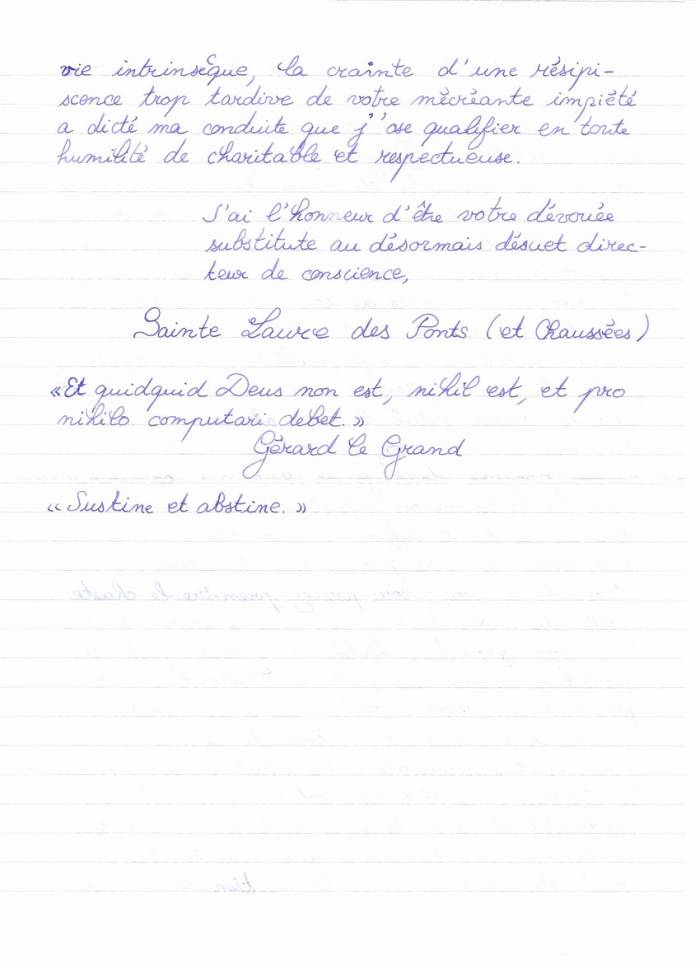 vie intrinsèque, la crainte d'une résipi-
scence trop tardive de votre mécréante impiété
a dicté ma conduite que j'ose qualifier en toute
humilité de charitable et respectueuse.
J'ai l'honneur d'être votre dévouée
substitute au désormais désuet direc-
teur de conscience,
Sainte Laure des Ponts (et Chaussées)
«Et quidquid Deus non est, nihil est, et pro
nihilo computari debet.»
Gérard le Grand
«Sustine et abstine.»